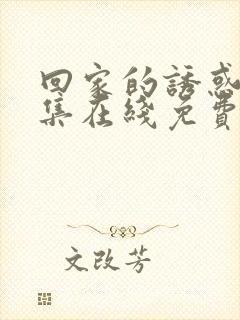 回家的誘惑
集在綫免費
文改芳